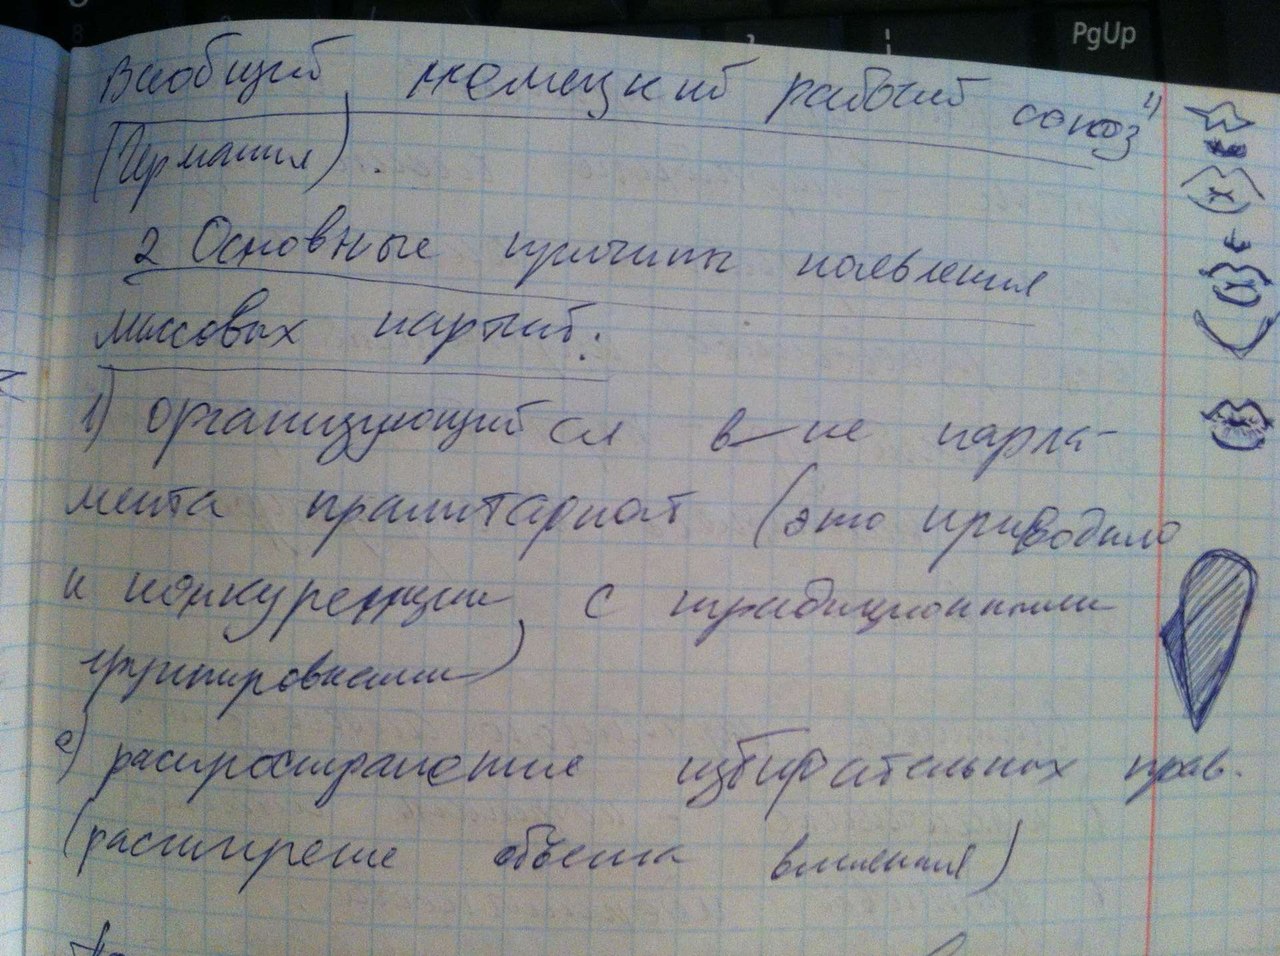 PgUp
Всеобщий немецкий рабочий союз"
(Германия).
2 Основные причины появления
массовых партий:
1) организующийся в-не парла-
мента пролитариат (это приводило
к конкуренции с традиционными
группировками)
2) распространение избирательных прав.
(расширение объема влияния)